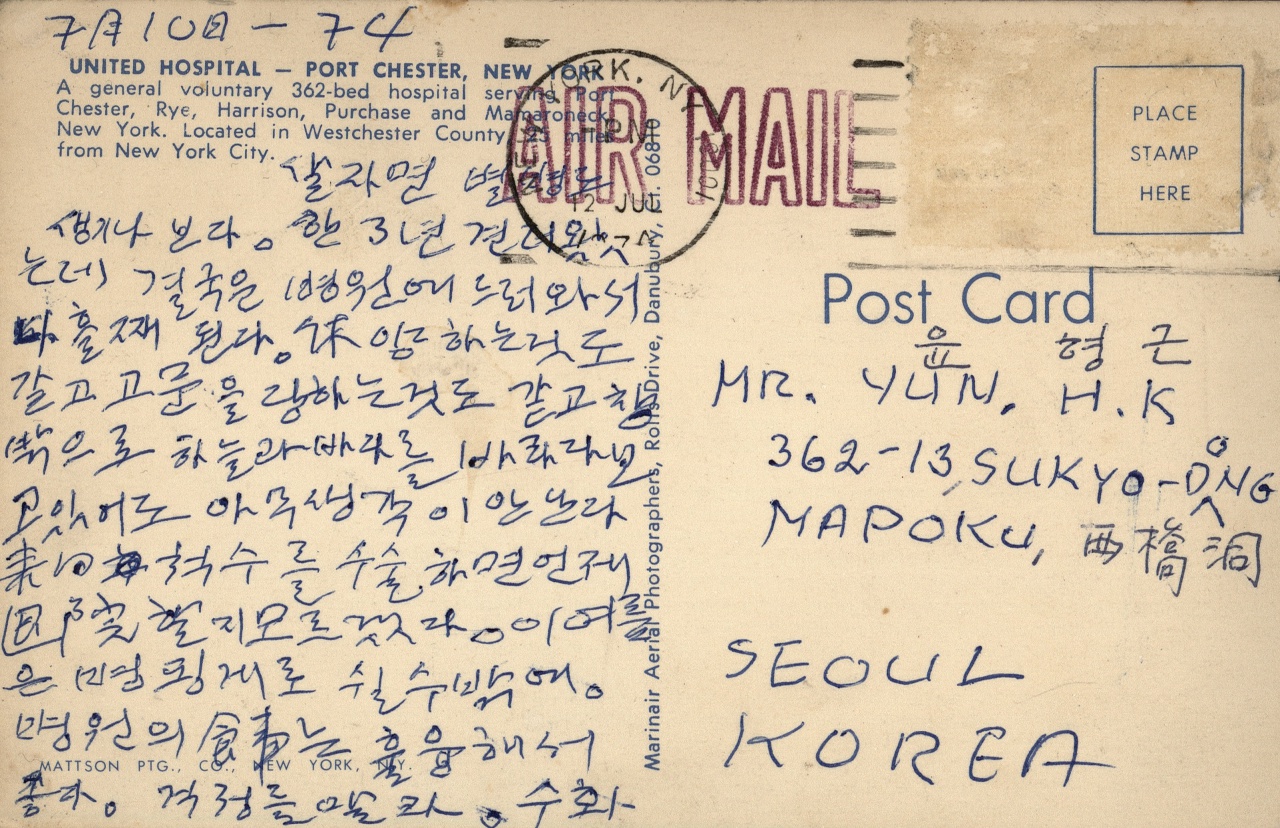 7月10日 - 74
UNITED HOSPITAL — PORT CHESTER, NEW YORK
A general voluntary 362-bed hospital serving Port
Chester, Rye, Harrison, Purchase and Mamaroneck,
New York. Located in Westchester County, 25 miles
from New York City.
살자면 별
생기나 보다。한 3년 견더왔
는데 결국은 병원에 드러와서
사흘째 된다。休암하는것도
같고 고문을 당하는것도 같고 창
밖으로 하늘과 바다를 바라다보
고 있어도 아무생각이 안난다
来日 척수를 수술하면 언제
退院할지 모르겠다。이 여름
은 병핑게로 쉴수밖에。
병원의 食事는 훌융해서
좋다。걱정을 말라。수화
MATTSON PTG., CO., NEW YORK, N.Y.
Marinair Aerial Photographers, Rolf's Drive, Danubury, Ct. 06810
AIR MAIL
NEW YORK, NY
PM
12 JUL
PLACE
STAMP
HERE
Post Card
윤 형 근
MR. YUN. H.K
362-13 SUKYO-DONG
MAPOKU, 西橋洞
SEOUL
KOREA